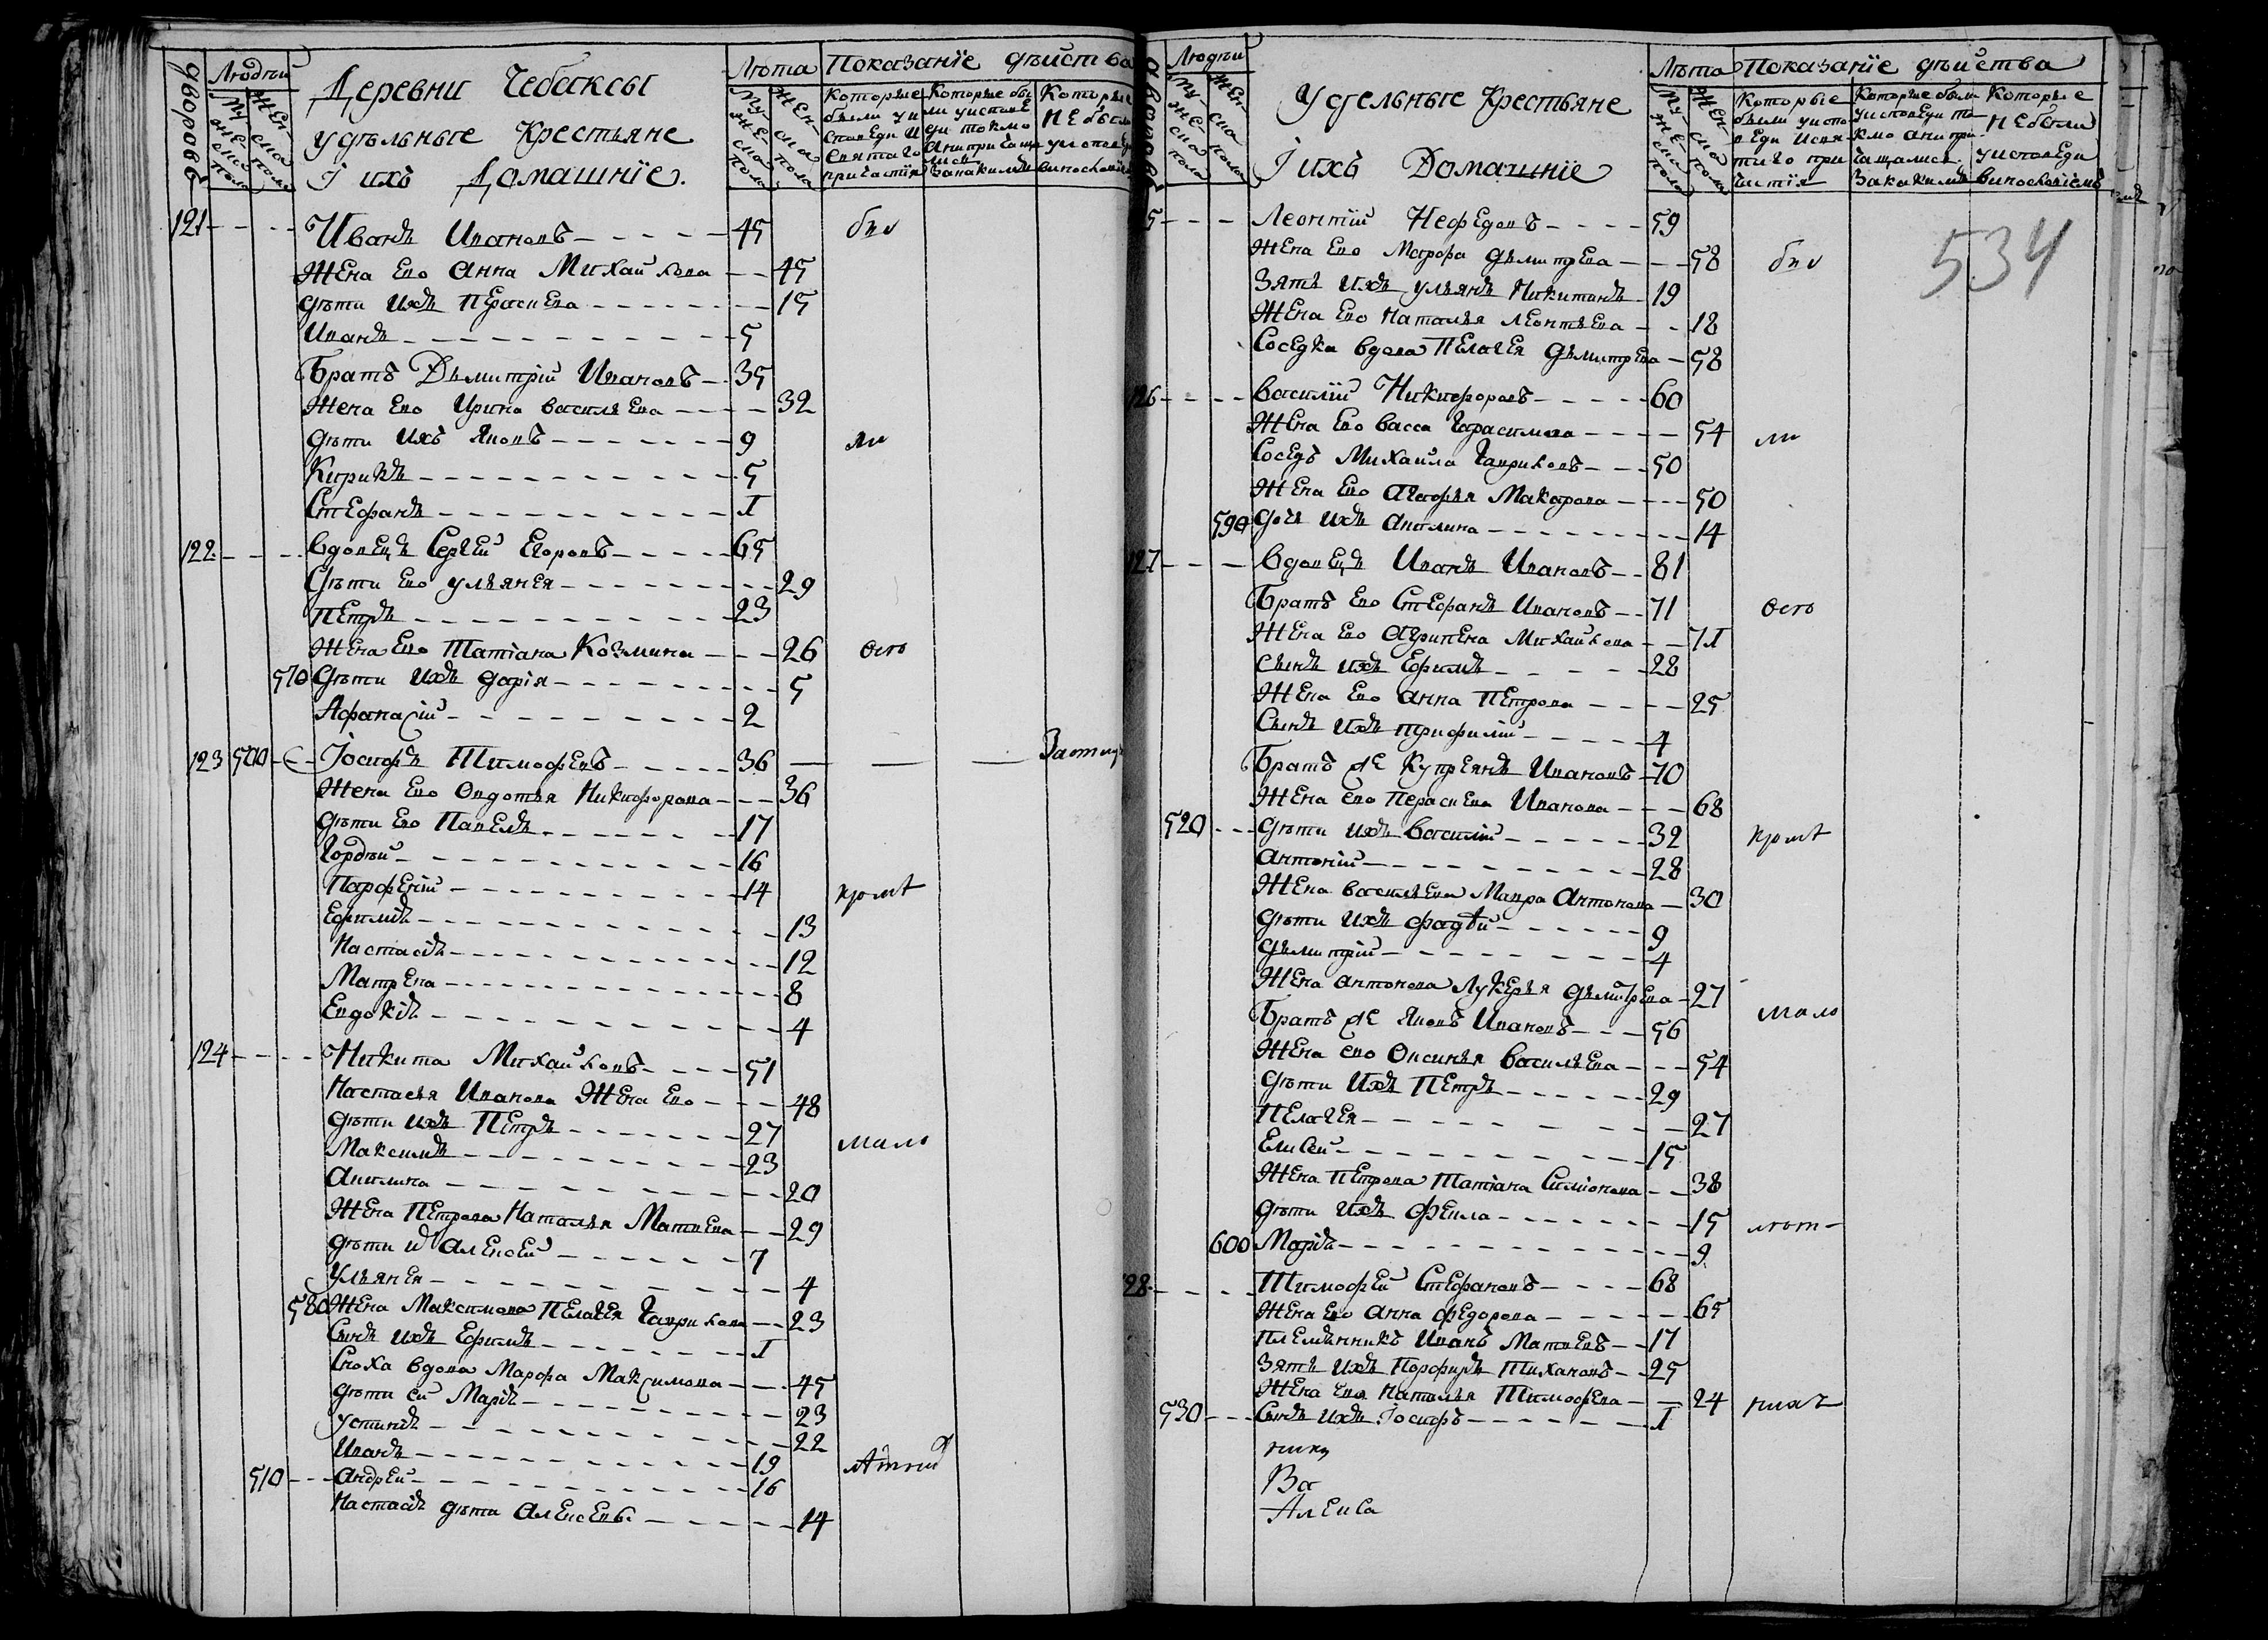 дворовъ
Людѣй
Му-
жЕ-
ска
пола
ЖЕн-
ска
пола
Деревни Чебаксы
удѣльные Крестьяне
Iихъ Домашнiе.
Лѣта
Му-
жЕ-
ска
пола
ЖЕн-
ска
пола
Показанiе дѣйства
Которые
были уи
споведи и
святаго
причастiя
Которые бы
ли уисповЕ
ди токмо
Которые
НЕ были
121 Иванъ Ивановъ 45 был
ЖЕна Ево Анна Михайлова 45
дѣти Ихъ ПЕрасиЕва 15
Иванъ 5
Братъ Дьмитрiй Ивановъ 35
Жена Ево Ирина ВасильЕва 32
дѣти Ихъ Яковъ 9 ли
Кирикъ 5
СтЕфанъ I
122 ВдовЕцъ СЕргЕй Егоровъ 65
Дѣти Ево ульянЕя 29
ПЕтръ 23
ЖЕна Ево Татiана Козмина 26 осто
570 Дѣти Ихъ дарiя 5
Афанасiй 2
123 500 Iосифъ ТимофЕЕвъ 36
Жена Ево Овдотья Никифорова 36
дѣти Ево ПавЕлъ 17
Гордѣй 16
ПарфЕнiй 14 кромѣ
Ефимiя 13
Настасiя 12
МатрЕна 8
Евдокiя 4
124 Никита Михайловъ 51
Настасья Иванова ЖЕна Ево 48
дѣти Ихъ ПЕтръ 27 мало
Максимъ 23
Акилина 20
ЖЕна ПЕтрова Наталья МатвЕЕва 29
дѣти и АлЕксЕй 7
УльянЕя 4
580 ЖЕна Максимова ПЕлагЕя Гаврилова 23
Сынъ Ихъ Ефимъ I
Сноха вдова Марфа Максимова 45
дѣти Ей Марiя 23
устинiя 22
Иванъ 19
510 АндрЕй 16 лѣтнихъ
Настасiя дѣти АлЕксЕЕвы 14
дворовъ
Людѣй
Му-
жЕ-
ска
пола
ЖЕн-
ска
пола
Удельные Крестьяне
Iихъ Домашнiе
Лѣта
Му-
жЕ-
ска
пола
ЖЕн-
ска
пола
Показанiе дѣйства
Которые
были успо
вЕди Исвя
таго при
частiя
Которые были
уисповЕди то
кмо анипри
чащались
Которые
НЕбыли
уисповЕди
534
5 Леонтiй НЕфЕдовъ 59
ЖЕна Ево Марфа дьмитрЕва 58 был
Зять Ихъ ульянъ Никитинъ 19
ЖЕна Ево Наталья ЛЕонтьЕва 18
СосЕдка вдова ПЕлагЕя дьмитрЕва 58
126 Василiй Никифоровъ 60
ЖЕна Ево Васса Герасимова 54 ли
СосЕдъ Михаила Гавриловъ 50
ЖЕна Ево Агафья Макарова 50
590 Дочь Ихъ Акилина 14
127 ВдовЕцъ Иванъ Ивановъ 81
Братъ Ево СтЕфанъ Ивановъ 71 осто
ЖЕна Ево АгрипЕна Михайлова 7I
Сынъ Ихъ Ефимъ 28
ЖЕна Ево Анна ПЕтрова 25
Сынъ Ихъ Трифилiй 4
Братъ жЕ КупрЕянъ Ивановъ 70
ЖЕна Ево ПЕрасиЕва Иванова 68
520 дѣти Ихъ Василiй 32 кромѣ
Антонiй 28
ЖЕна ВасильЕва Мавра Антонова 30
дѣти Ихъ Фадѣй 9
дьмитрiй 4
ЖЕна Антонова ЛукЕрья дьмитрЕва 27 мало
Братъ жЕ Яковъ Ивановъ 56
ЖЕна Ево Оксинья ВасильЕва 54
дѣти Ихъ ПЕтръ 29
ПЕлагЕя 27
ЕлисЕй 15
ЖЕна ПЕтрова Татiана Симiонова 38
дѣти Ихъ ФЕкла 15 лѣт-
600 Марiя 9
128 ТимофЕй СтЕфановъ 68
ЖЕна Ево Анна ФЕдорова 65
ПлЕмянникъ Иванъ МатвЕЕвъ 17
Зять Ихъ Порфиръ Тихановъ 25
ЖЕна Ево Наталья ТимофЕЕва 24 нихъ
530 Сынъ Ихъ Iосифъ I
Ва
АлЕкса